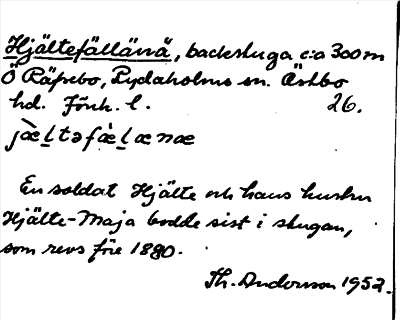 Hjältefällänä, backstuga c:a 300 m
Ö Räpsbo, Rydaholms sn. Östbo
hd. Jönk. l. 26.
jæ̀ḻtəfæ̀ḻænæ
En soldat Hjälte och hans hustru
Hjälte-Maja bodde sist i stugan,
som revs före 1880.
Th. Anderson 1952.